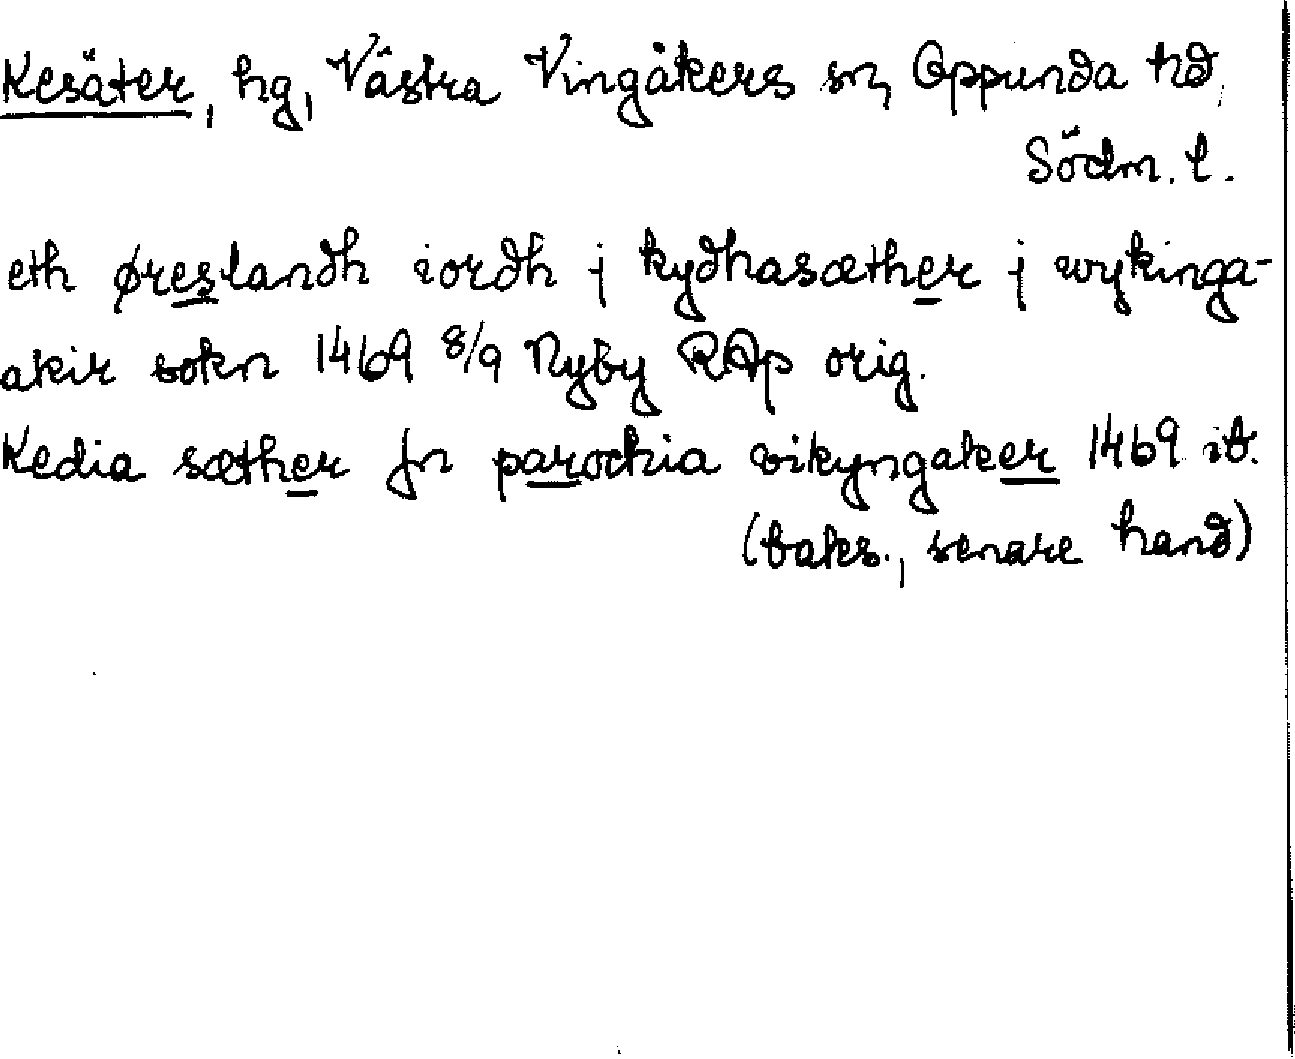 Kesäter, hg, Västra Vingåkers sn, Oppunda hd,
Södm. l.
eth øreslandh iordh j kydhasæther j wykinga-
akir sokn 1469 8/9 Nyby RAp orig.
Kedia sæther Jn parochia vikyngaker 1469 ib.
(baks., senare hand)